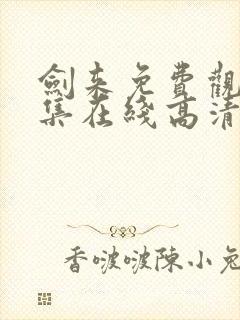 劍來免費觀
集在綫高清
香啵啵陳小兔